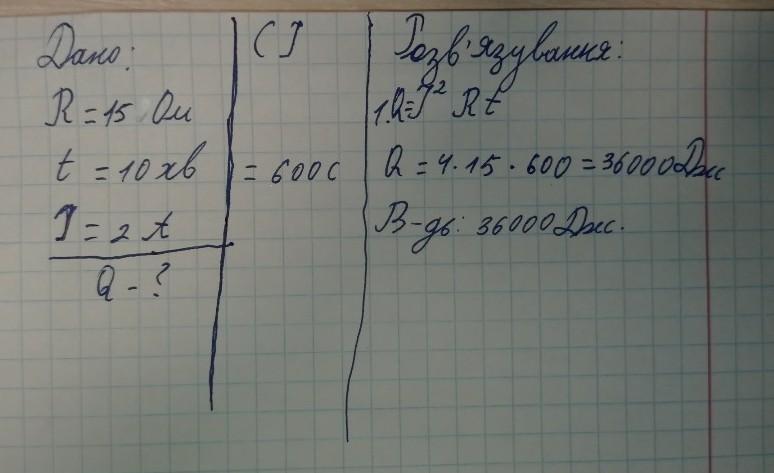 Дано:
R = 15 Ом
t = 10 хв
I = 2 A
Q - ?
СІ
= 600 с
Розв'язування:
1. Q = I² R t
Q = 4 · 15 · 600 = 36000 Дж
В-дь: 36000 Дж.